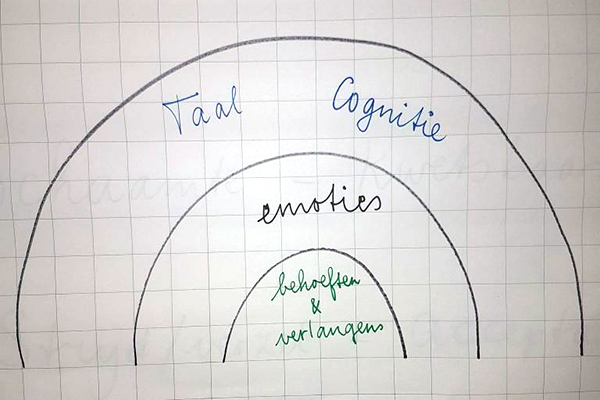 Taal Cognitie
emoties
behoeften
&
verlangens